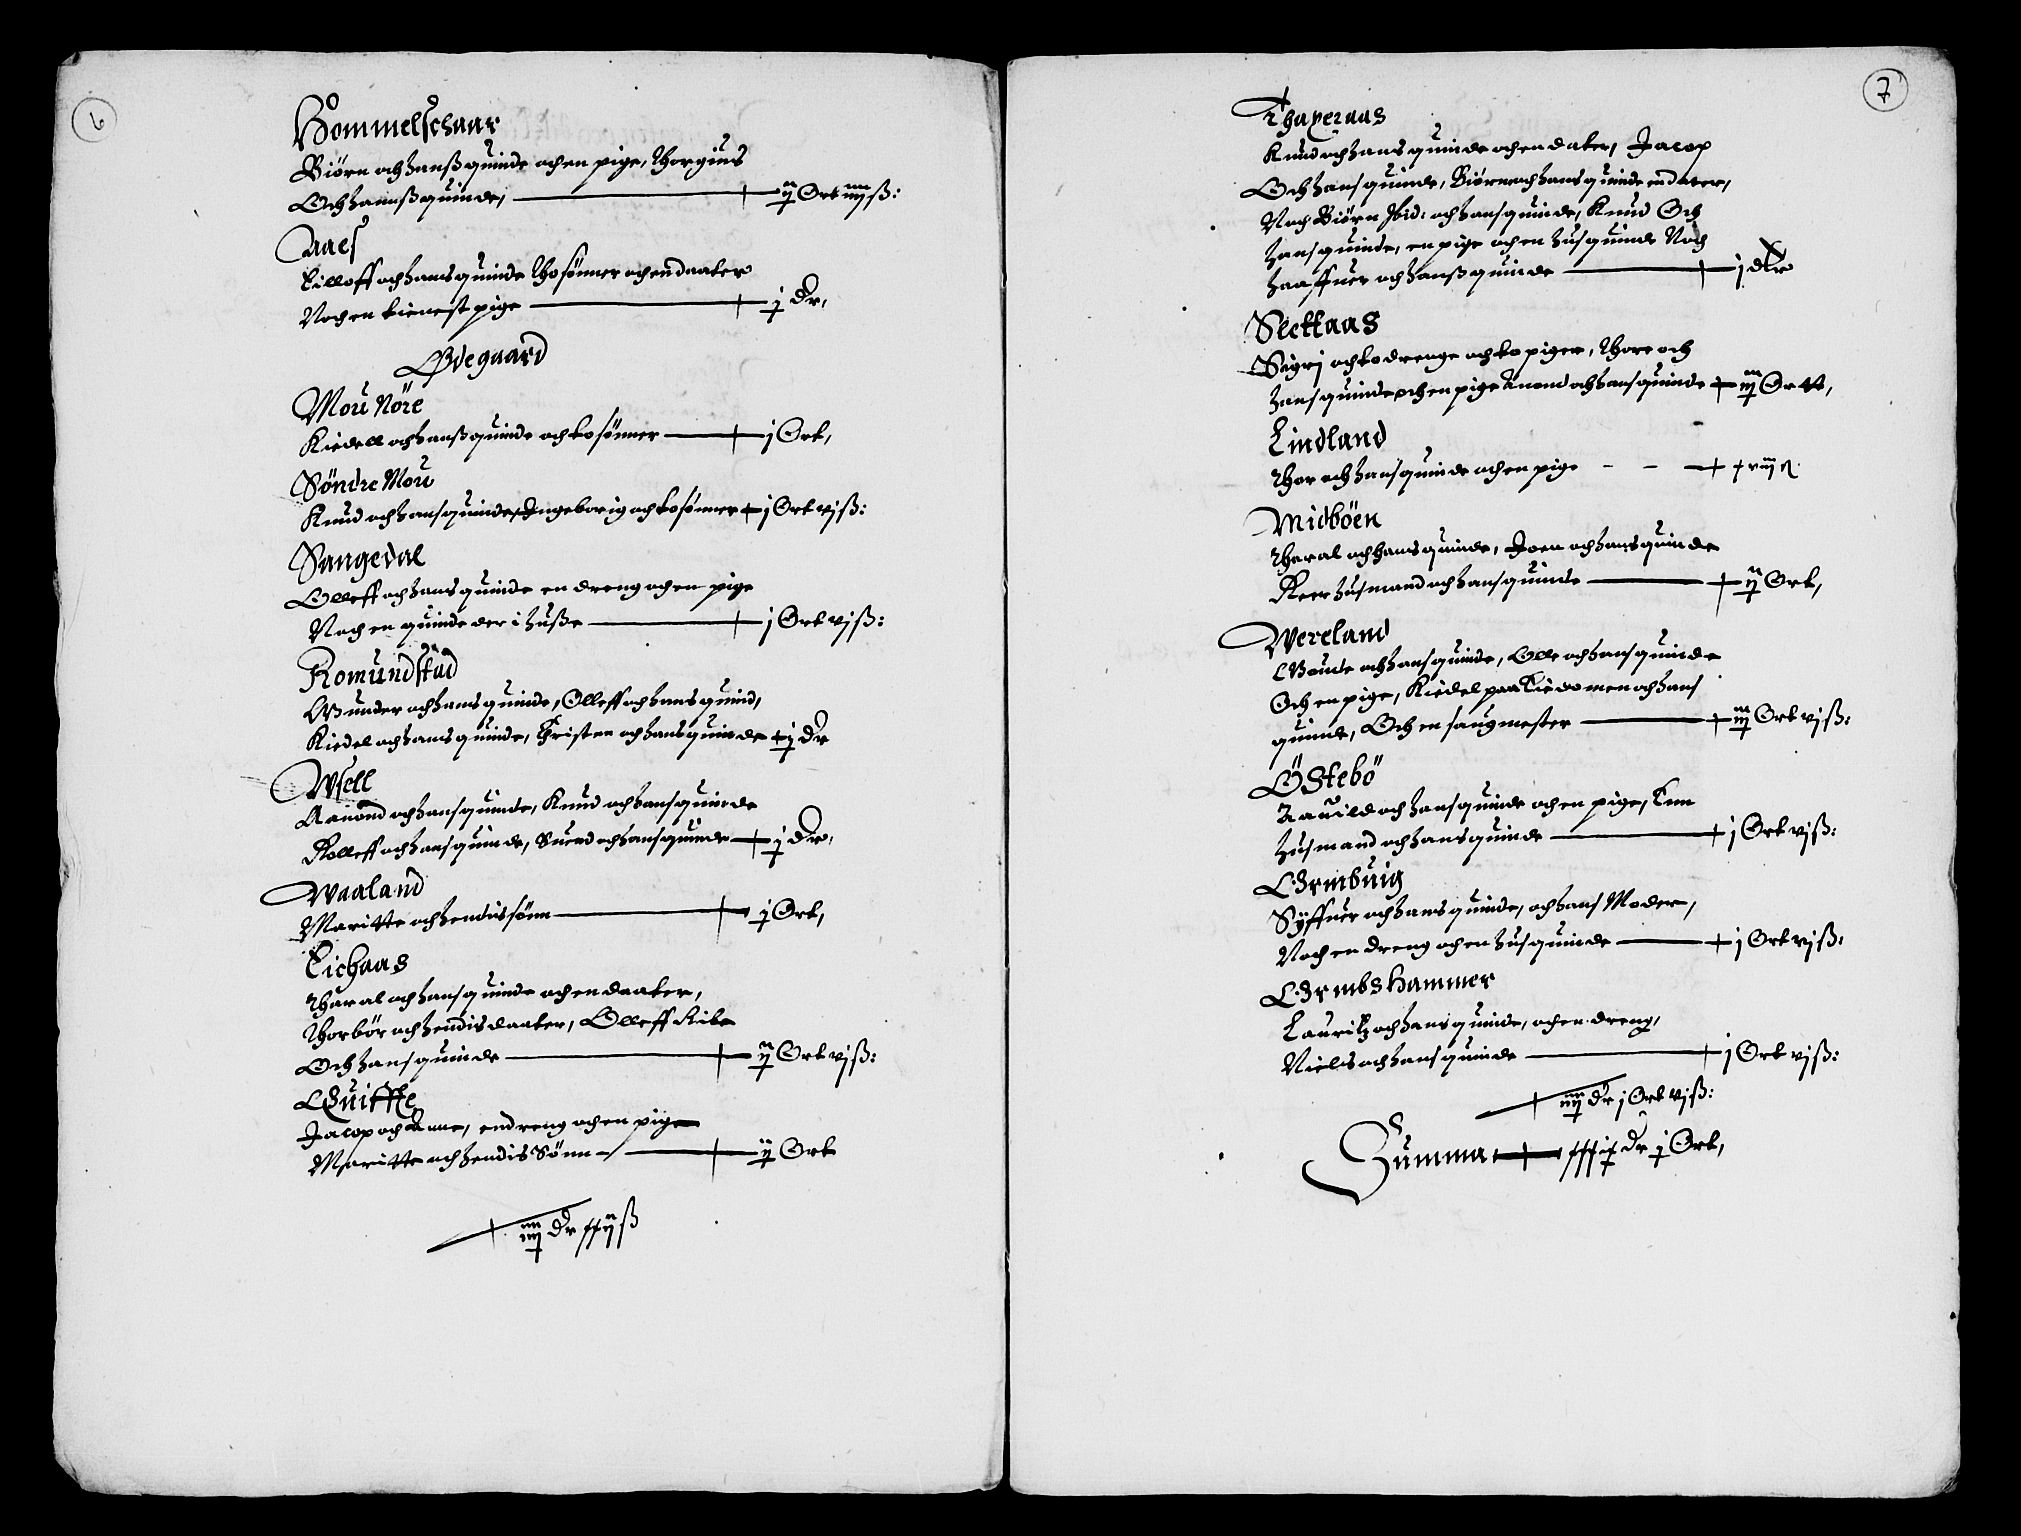 6
Hommelschaar
Biörn och hanß quinde och en pige, Thorgius
Och hanß quinde, ij Ort iiij ß:
Aaes
Tilloff och hans quinde tho sönner och en daater
Noch en tienest pige j Dr,
Ødegaard
Mou Nöre
Kiedell och hanß quinde och to sönner j Ort,
Söndre Mou
Knud och hans quinde, Ingeborig och to sönner j Ort vj ß:
Sangedal
Olleff och hans quinde en dreng och en pige
Noch en quinde der i huße j Ort vj ß:
Romundstad
Gunder och hans quinde, Olleff och hans quind,
Kiedel och hans quinde, Christen och hans quinde j Dr
Wsell
Aanond och hans quinde, Knud och hans quinde
Rolleff och hans quinde, Suend och hans quinde j Dr,
Waaland
Maritte och hendis sönn j Ort,
Eichaas
Tharal och hans quinde och en daater,
Thorbör och hendis daater, Olleff
Och hans quinde ij Ort vj ß:
Quiffte
Jacop och Anne, en dreng och en pige
Maritte och hendis Sönn ij Ort
iiij Dr xxij ß
7
Knud och hans quinde och en dater, Jacop
Och hans quinde, Biörn och hans quinde en dater,
Noch Biörn Ibid: och hans quinde, Knud Och
hans quinde, en pige och en husquinde Noch
Haaffuer och hanß quinde j dlr
Slettaas
Sigrj och to drenge och to piger, Thore och
hans quinde och en pige Anond och hans quinde iij Ortt,
Lindland
Thor och hans quinde och en pige xviij ß
Midböen
Tharal och hans quinde, Joen och hans quinde
Peer husmand och hans quinde ij Ort,
Wereland
Gunte och hans quinde, Olle och hans quinde
Och en pige, Kiedel paa Tiedomen och hans
quinde, Och en saugmester iij Ort vj ß:
Östebö
Tauild och hans quinde och en pige,
husmand och hans quinde j Ort vj ß:
Syffuer och hans quinde, och hans Moder,
Noch en dreng och en husquinde j Ort vj ß:
Lauritz och hans quinde, och en dreng,
Niels och hans quinde j Ort vj ß:
iiij Dr j Ort vj ß:
Summa Dr j Ort,